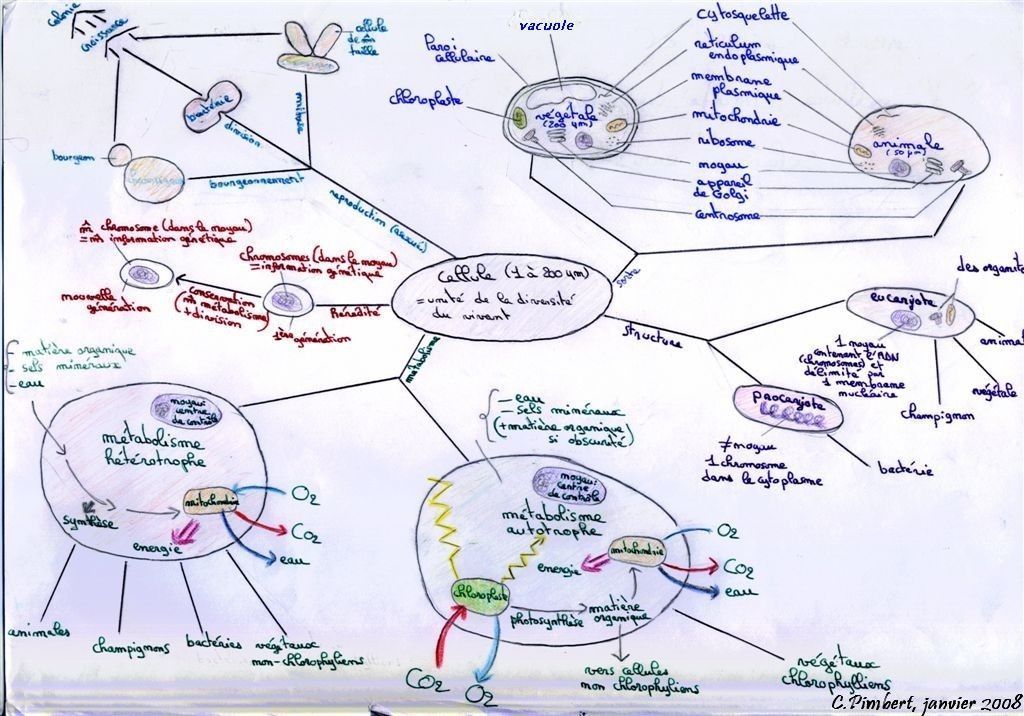 colonie
croissance
cellule
de m̂
taille
mitose
bactérie
division
bourgeon
bourgeonnement
reproduction (asexuée)
vacuole
Paroi
cellulaire
chloroplaste
végétale
(200 µm)
cytosquelette
réticulum
endoplasmique
membrane
plasmique
mitochondrie
ribosome
noyau
appareil
de Golgi
centrosome
animale
(50 µm)
m̂ chromosome (dans le noyau)
= m̂ information génétique
nouvelle
génération
conservation
(m̂ métabolisme)
+ division
chromosomes (dans le noyau)
= information génétique
1ère génération
hérédité
Cellule (1 à 200 µm)
= unité de la diversité
du vivant
sorte
structure
métabolisme
des organite
eucaryote
1 noyau
contenant l'ADN
(chromosomes) et
délimité par
1 membrane
nucléaire
animal
végétale
champignon
procaryote
≠ noyau
1 chromosome
dans le cytoplasme
bactérie
- matière organique
- sels minéraux
- eau
noyau:
centre
de contrôle
métabolisme
hétérotrophe
synthèse
mitochondrie
énergie
O2
CO2
eau
animales
champignons
bactéries
végétaux
non-chlorophyliens
- eau
- sels minéraux
(+ matière organique
si obscurité)
noyau:
centre
de contrôle
métabolisme
autotrophe
énergie
mitochondrie
O2
CO2
eau
chloroplaste
photosynthèse
matière
organique
CO2
O2
vers cellules
non chlorophyliens
végétaux
chlorophylliens
C.Pimbert, janvier 2008